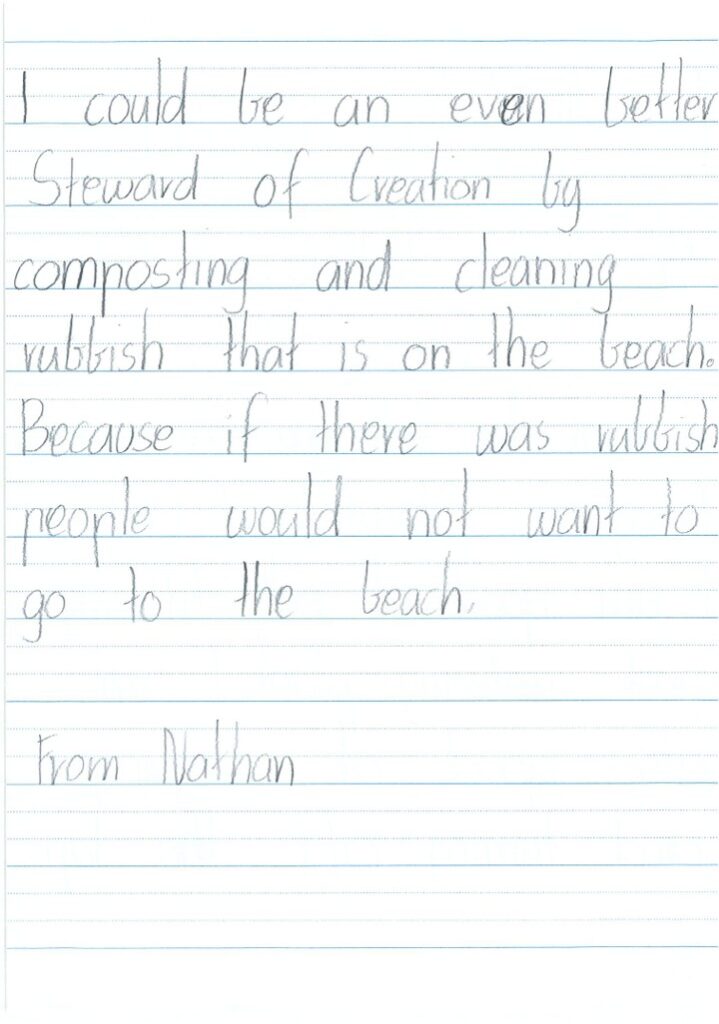 I could be an even better
Steward of Creation by
composting and cleaning
rubbish that is on the beach.
Because if there was rubbish
people would not want to
go to the beach.
From Nathan